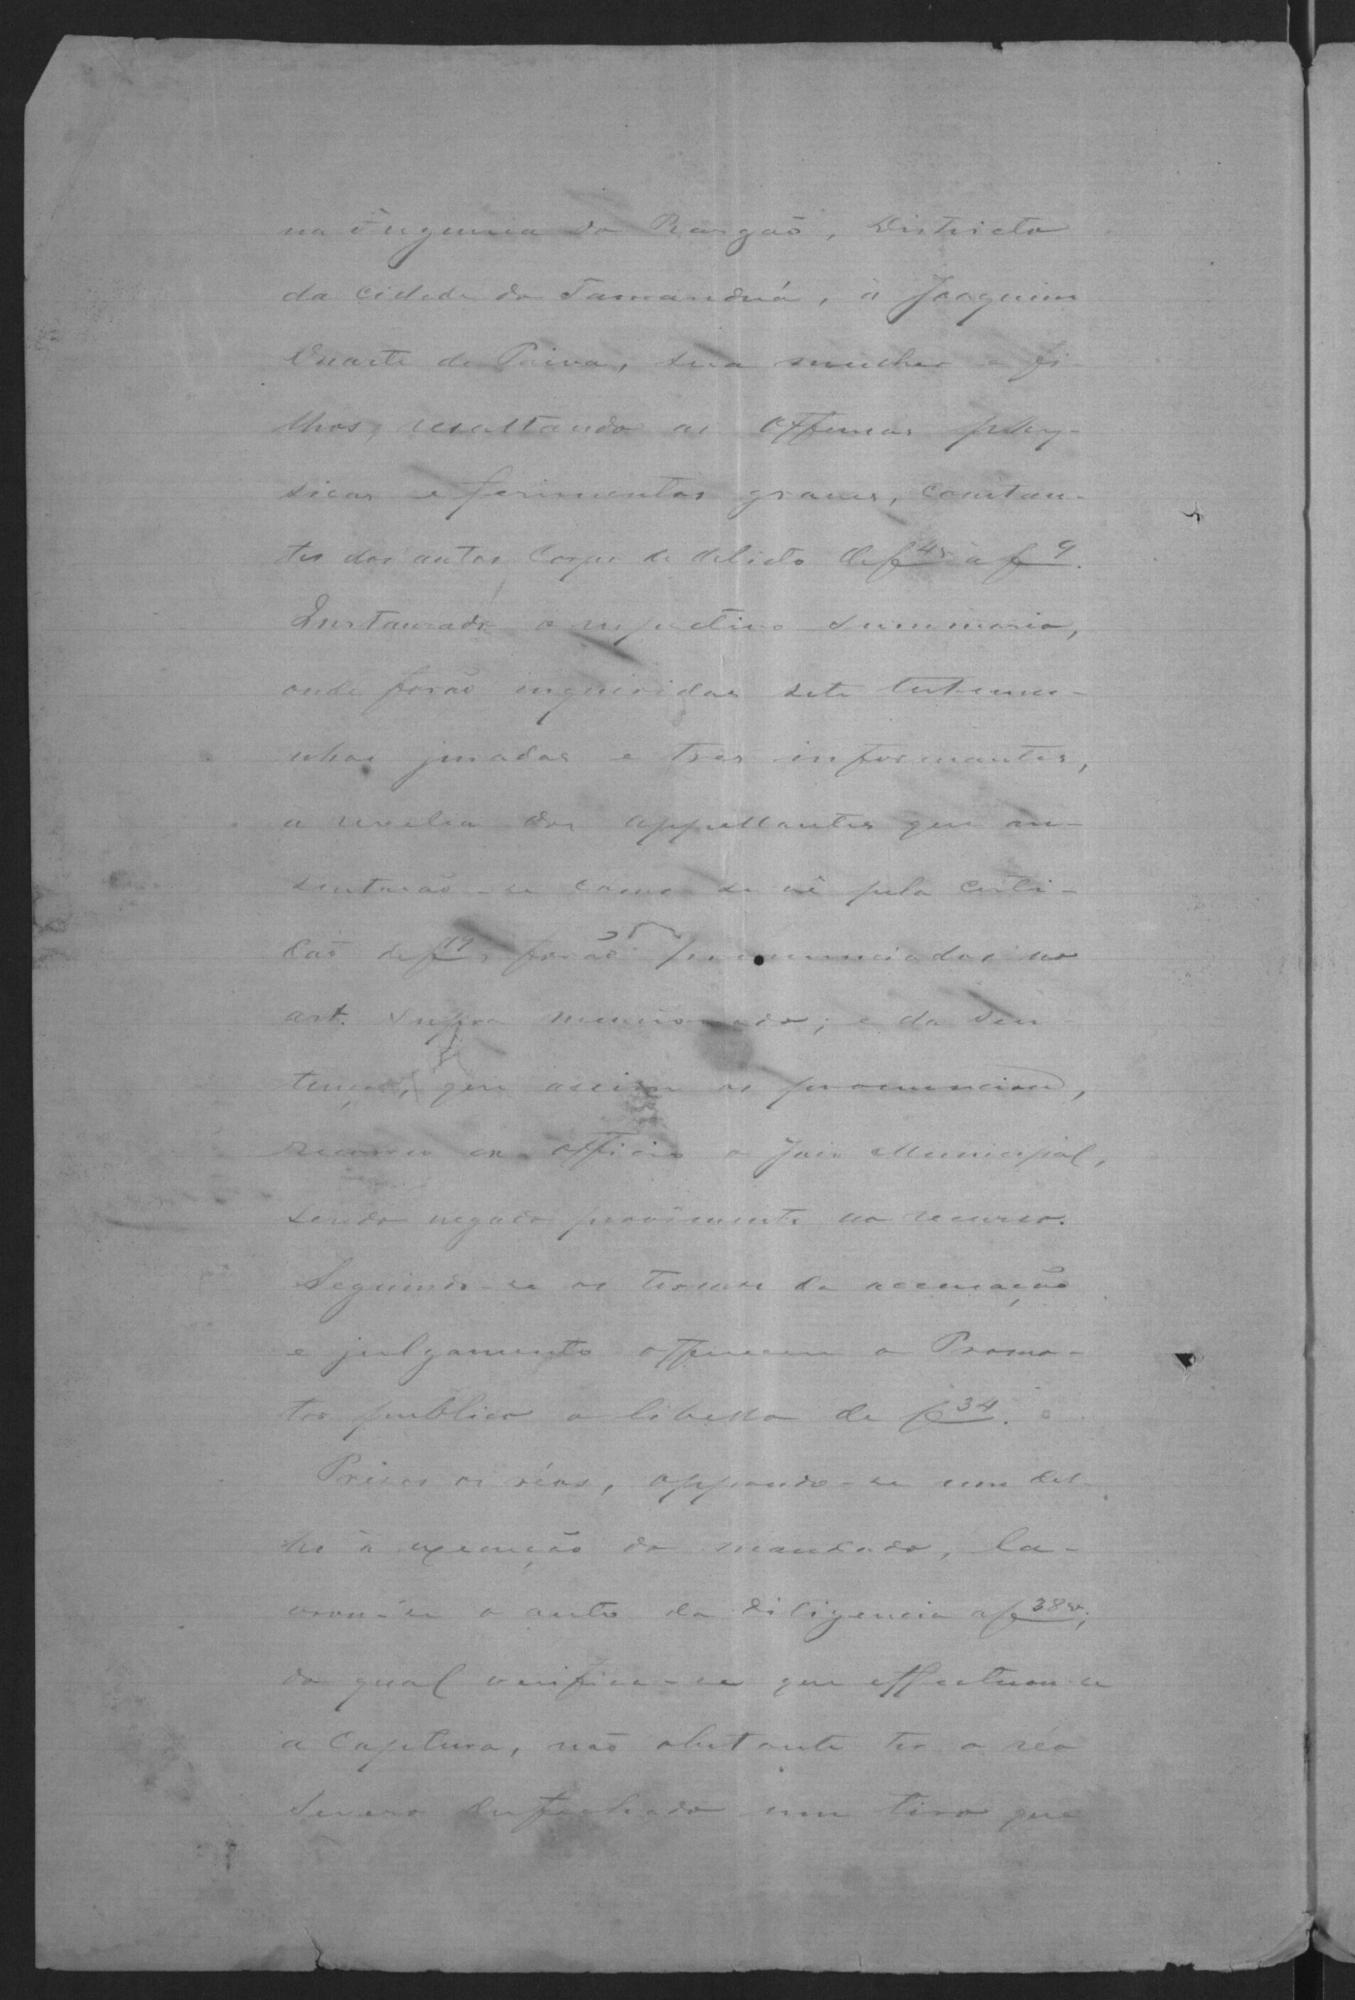 na do Rasgão, Districto
da cidade do Tamanduá, à Joaquim
Duarte de Paiva, sua mulher e fi-
lhos, resultando as offensas phy-
sicas e ferimentos graves, constan-
tes dos autos Corpo de delicto de f 4v a f 9.
Instaurado o respectivo summario,
onde forão inqueridas sete testemu-
nhas juradas e tres informantes,
a revelia dos appellantes que au-
sentarão-se como se vê pela certi-
dão de f 19, forão pronunciados no
art. supra mencionado; e da sen-
tença, que assim os pronunciou,
recorreu ex-officio o Juiz Municipal,
sendo negado provimento ao recurso.
Seguindo-se os termos da accusação
e julgamento offereceu o Promo-
tor publico o libello de f 34.
Presos os réos, oppondo-se um del-
les à execução do mandado, la-
vrou-se o auto da diligencia a f 38v,
do qual verifica-se que effectuou-se
a captura, não obstante ter o réo
Severo desfechado um tiro que